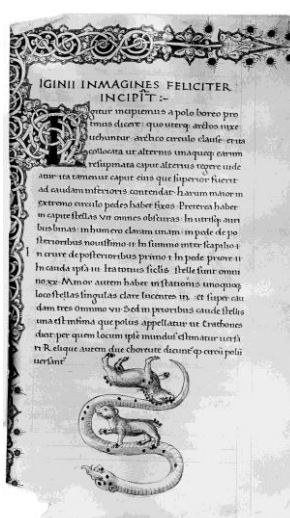 IGINII INMAGINES FELICITER
INCIPIT :~
Igitur incipiemus a polo boreo pro
timus dicere: quo uterq. arctos nixe
uehuntur. arctico circulo clause. et ita
collocata ut alternis unaqueq. earum
resupinata caput alterius tegere uide
atur: ita tamen ut caput eius que superior fuerit
ad caudam inferioris contendat. harum maior in
extremo circulo pedes habet fixos. Preterea habet
in capite stellas VII omnes obscuras. In utrisq. auri
bus binas. in humero claram unam. in pede de po
sterioribus nouissimo II. In summo inter scapilio I
In crure de posterioribus primo I. In pede priore II
In cauda ipsa III. Ita totius siclis. stelle sunt omni
no XX. Minor autem habet in stationis unoquoq.
loco stellas singulas clare lucentes IIII. et super cau
dam tres omnino VII. Sed in prioribus caude stellis
una est infima que polus appellatur ut Erathones
dicit. per quem locum ipse mundus estimatur uersa
ri Relique autem due choreute dicunt' q. circu polu
uersant'